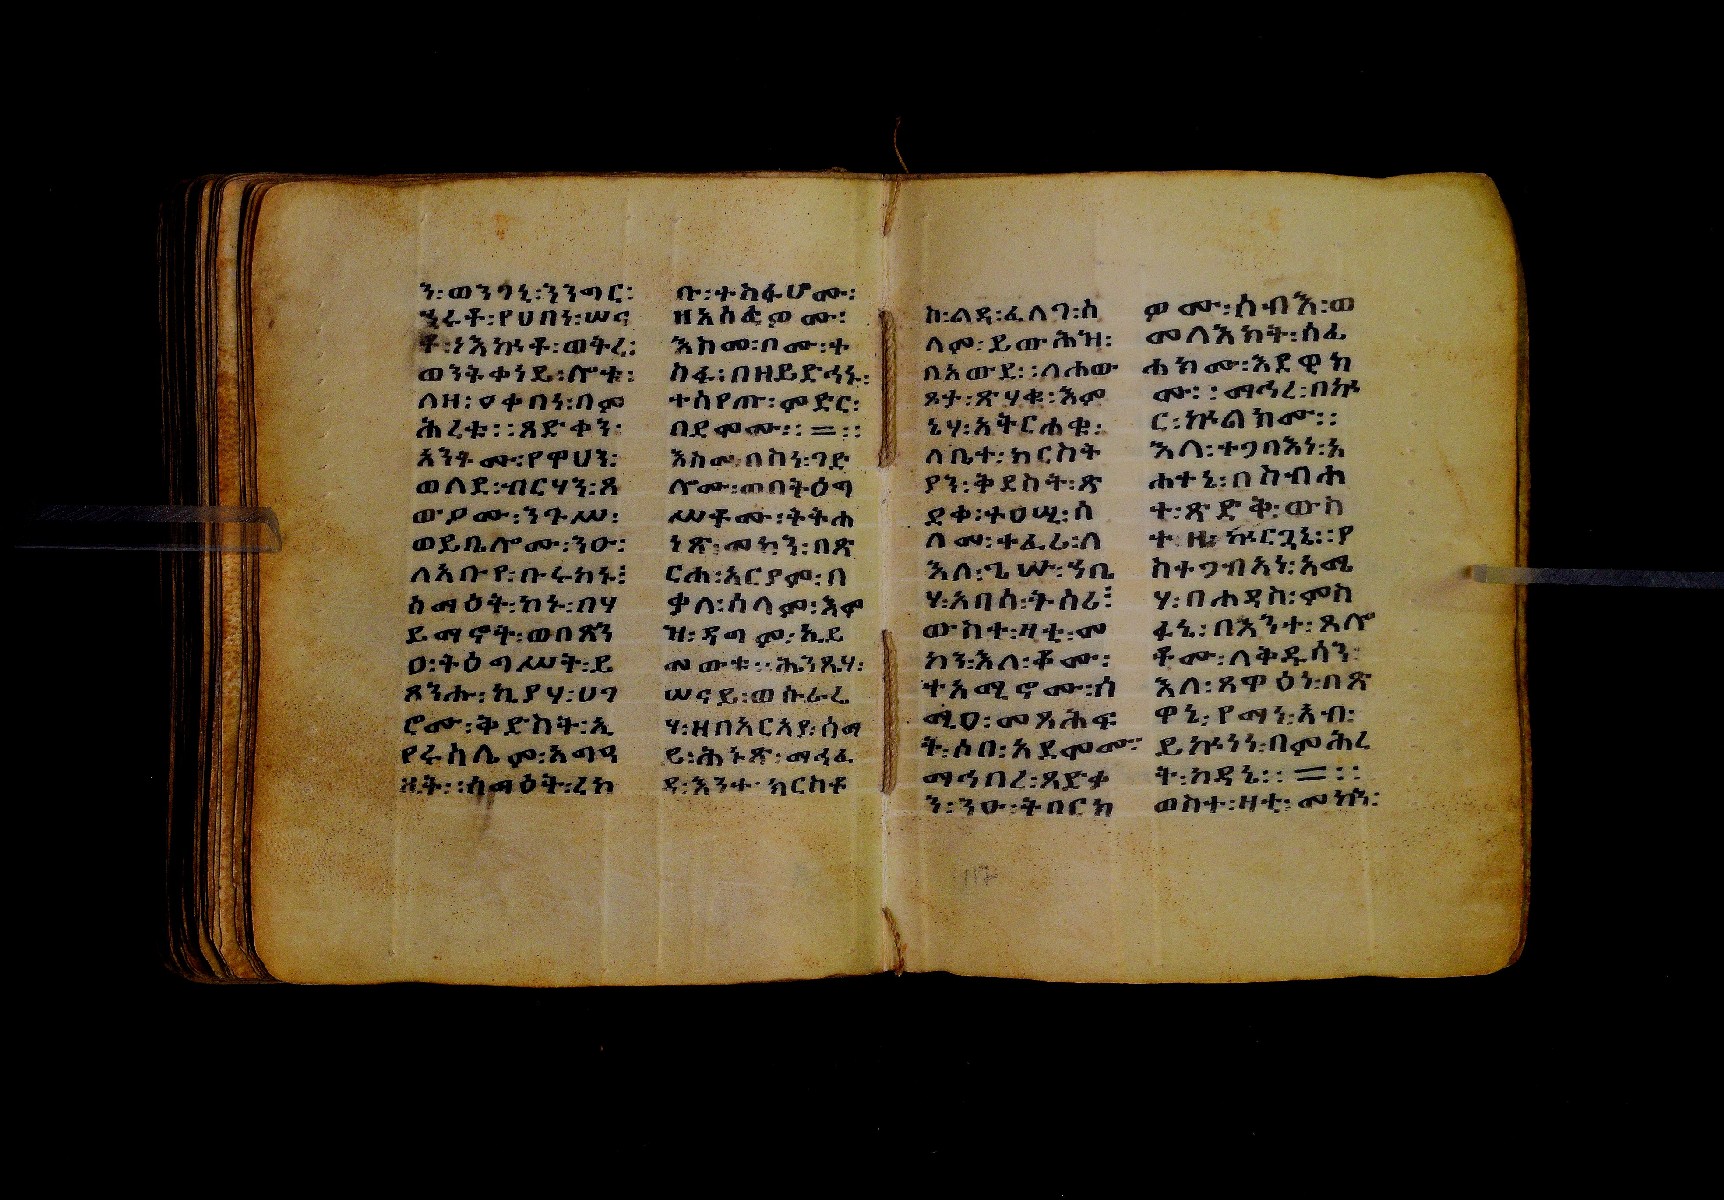 ን፡ወንግኒ፡ንንግር፡
ኂሩቶ፡የሀበነ፡ሠና
ቶ፡ነአኵቶ፡ወትረ፡
ወንትቀነይ፡ሎቱ፡
ለዘ፡ዐቀበነ፡በም
ሕረቱ፡፡ጻድቀን፡
እንትሙ፡የዋህን፡
ወለደ፡ብርሃን፡ጸ
ውዖሙ፡ንጉሥ፡
ወይቤሎሙ፡ንዑ፡
ለአቡየ፡ቡሩካኑ፡
ሰማዕት፡ከኑ፡በሃ
ይማኖት፡ወበጽን
ዐ፡ትዕግሥት፡ይ
ጸንሑ፡ኪያሃ፡ሀገ
ሮሙ፡ቅድስት፡ኢ
የሩሳሌም፡አግዓ
ዚት፡፡ሰማዕት፡ረከ
ቡ፡ተስፋሆሙ፡
ዘአሰፈዎሙ፡
እስመ፡ቦሙ፡ተ
ስፋ፡በዘይድኅኑ፡
ተሰየጡ፡ምድር፡
በደሞሙ፡፡=፡፡
እስመ፡በስነ፡ገድ
ሎሙ፡ወበትዕግ
ሥቶሙ፡ትትሐ
ነጽ፡መካን፡በጽ
ርሐ፡አርያም፡በ
ቃለ፡ሰላም፡እም
ዝ፡ዳግም፡ኢይ
መውቱ፡፡ሕንጼሃ፡
ሠናይ፡ወኩራረ
ሃ፡ዘበአርአያ፡ሰማ
ይ፡ሕኑጽ፡ማኅፈ
ዳ፡እንተ፡ክርስቶ
ስ፡ልዳ፡ፈለገ፡ሰ
ላም፡ይውሕዝ፡
በአውደ፡፡ለሐው
ጸታ፡ጽሃቁ፡እም
ኔሃ፡ኢትርሐቁ፡
ለቤተ፡ክርስት
ያን፡ቅድስት፡ጽ
ደቀ፡ተዐሢ፡ሰ
ላመ፡ተፈሪ፡ለ
እለ፡ጌሡ፡ኀቤ
ሃ፡አበሳ፡ትስሪ፡
ውስተ፡ዛቲ፡መ
ካን፡እለ፡ቆሙ፡
ተአሚኖሙ፡ሰ
ሚዐ፡መጻሕፍ
ት፡ሰበ፡አደሞሙ፡
ማኅበረ፡ጻድቃ
ን፡ንዑ፡ትበርክ
ዎሙ፡ሰብእ፡ወ
መላእክት፡ሰፊ
ሐክሙ፡እደዊክ
ሙ፡፡ማኅረ፡በኵ
ር፡ኵልክሙ፡፡
እለ፡ተጋባእነ፡አ
ሐተኒ፡በስብሐ
ተ፡ጽድቅ፡ውስ
ተ፡ዛ፡ኵርጓኔ፡፡የ
ስተጋብአነ፡አሜ
ሃ፡በሐዳስ፡ምስ
ፋኒ፡በእንተ፡ጸሎ
ቶሙ፡ለቅዱሳን፡
እለ፡ጸዋዕነ፡በጽ
ዋኒ፡የማነ፡እብ፡
ይኵነነ፡በምሕረ
ት፡ከዳኒ፡፡=፡፡
ወስተ፡ዛቲ፡መካን፡